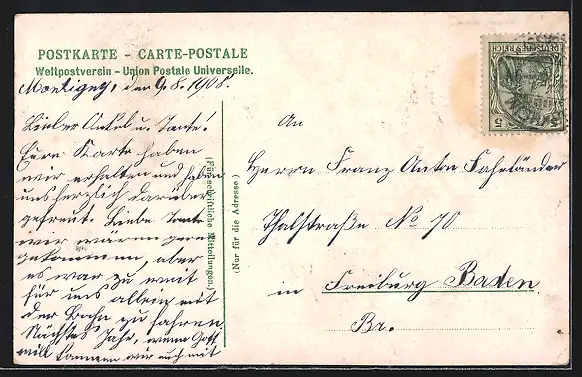 POSTKARTE - CARTE-POSTALE
Weltpostverein - Union Postale Universelle.
Montigny, den 9.8.1908.
Lieber Onkel u. Tante!
Eure Karte haben
wir erhalten und haben
uns herzlich darüber
gefreut. Liebe Tante
wir wären gerne
gekommen, aber
es war zu weit
für uns allein mit
der Bahn zu fahren,
Nächstes Jahr, wenn Gott
will kommen wir auch mit
(Für schriftliche Mitteilungen)
(Nur für die Adresse)
An
Herrn Franz Anton Fahrländer
Thalstraße No 70
in Freiburg Baden
Br.
DEUTSCHES REICH
5